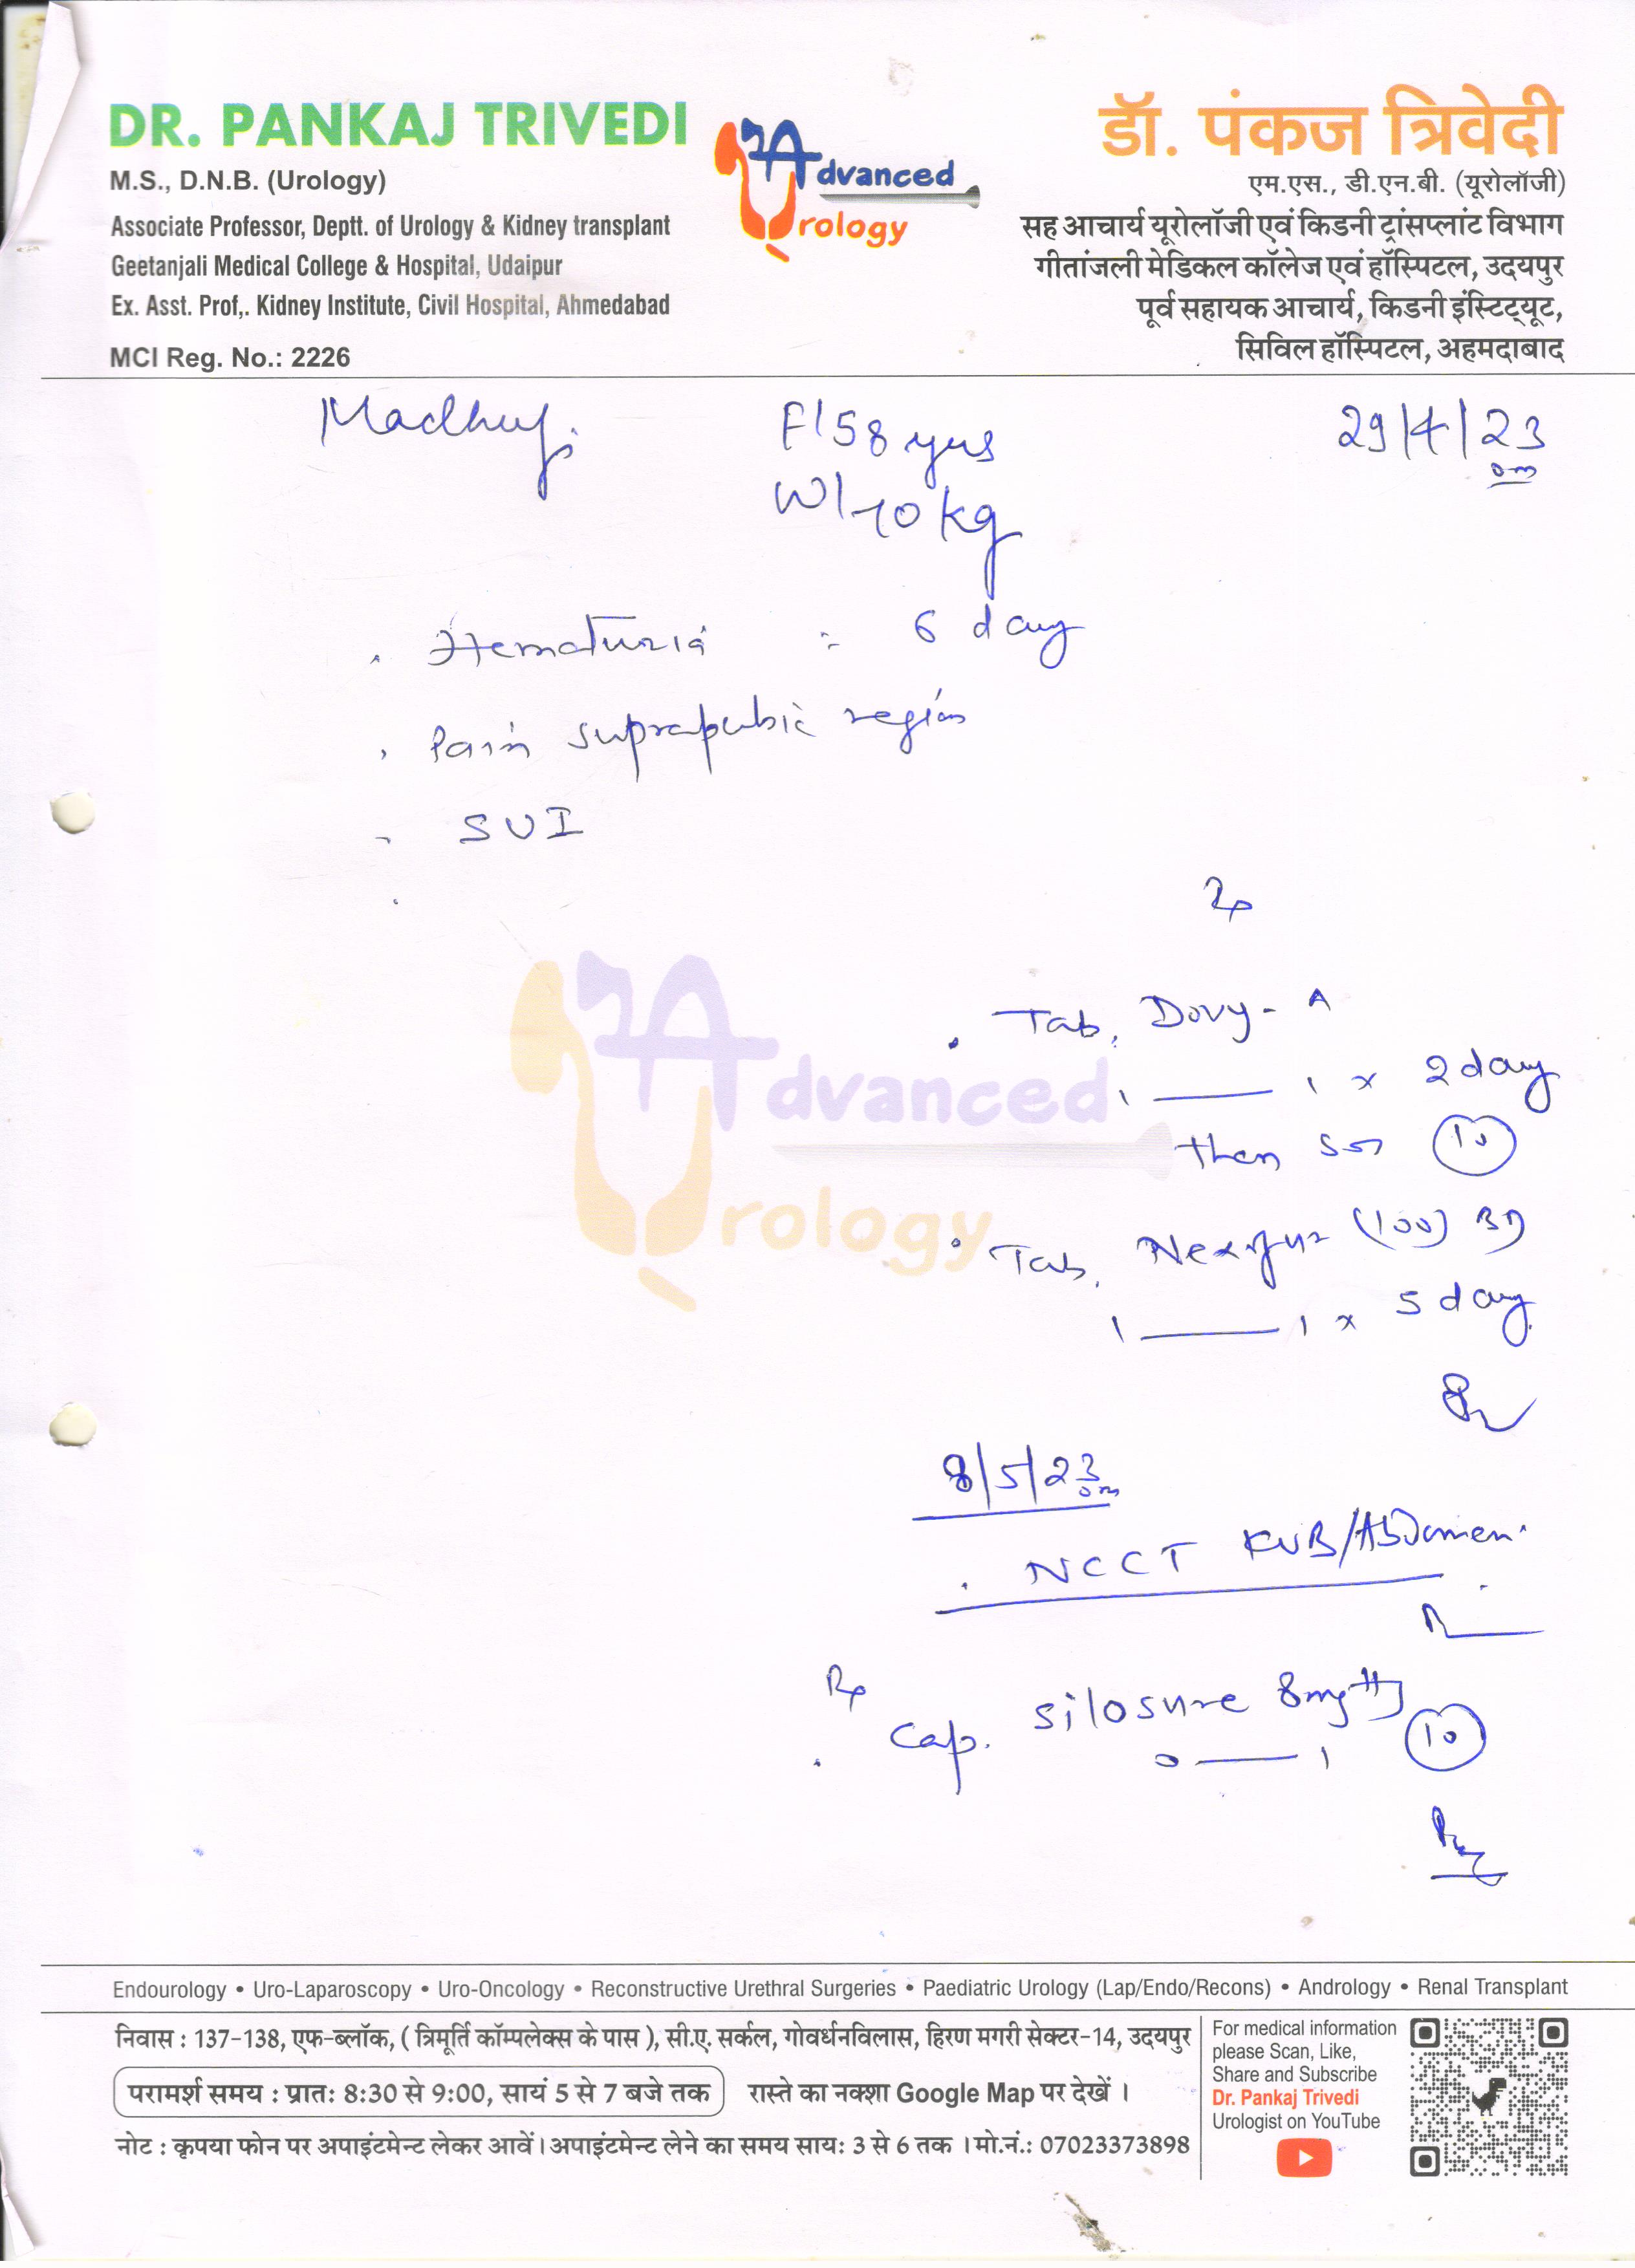 DR. PANKAJ TRIVEDI
M.S., D.N.B. (Urology)
Associate Professor, Deptt. of Urology & Kidney transplant
Geetanjali Medical College & Hospital, Udaipur
Ex. Asst. Prof,. Kidney Institute, Civil Hospital, Ahmedabad
MCI Reg. No.: 2226
Advanced
Urology
डॉ. पंकज त्रिवेदी
एम.एस., डी.एन.बी. (यूरोलॉजी)
सह आचार्य यूरोलॉजी एवं किडनी ट्रांसप्लांट विभाग
गीतांजली मेडिकल कॉलेज एवं हॉस्पिटल, उदयपुर
पूर्व सहायक आचार्य, किडनी इंस्टिट्यूट,
सिविल हॉस्पिटल, अहमदाबाद
F/58 yrs
29/4/23
W/70 kg
Hematuria : 6 day
Pain suprapubic region
SUI
Rp
Advanced
Urology
Tab. Dovy-A
1 —— 1 x 2 day
then SOS 10
Tab. (100) BD
1 —— 1 x 5 day
8/5/23
NCCT KUB/Abdomen
Rp
Cap. Silosure 8mg
0 —— 1 10
Endourology • Uro-Laparoscopy • Uro-Oncology • Reconstructive Urethral Surgeries • Paediatric Urology (Lap/Endo/Recons) • Andrology • Renal Transplant
निवास : 137-138, एफ-ब्लॉक, ( त्रिमूर्ति कॉम्पलेक्स के पास ), सी.ए. सर्कल, गोवर्धनविलास, हिरण मगरी सेक्टर-14, उदयपुर
परामर्श समय : प्रातः 8:30 से 9:00, सायं 5 से 7 बजे तक रास्ते का नक्शा Google Map पर देखें ।
नोट : कृपया फोन पर अपाइंटमेन्ट लेकर आवें । अपाइंटमेन्ट लेने का समय सायः 3 से 6 तक । मो.नं.: 07023373898
For medical information
please Scan, Like,
Share and Subscribe
Dr. Pankaj Trivedi
Urologist on YouTube